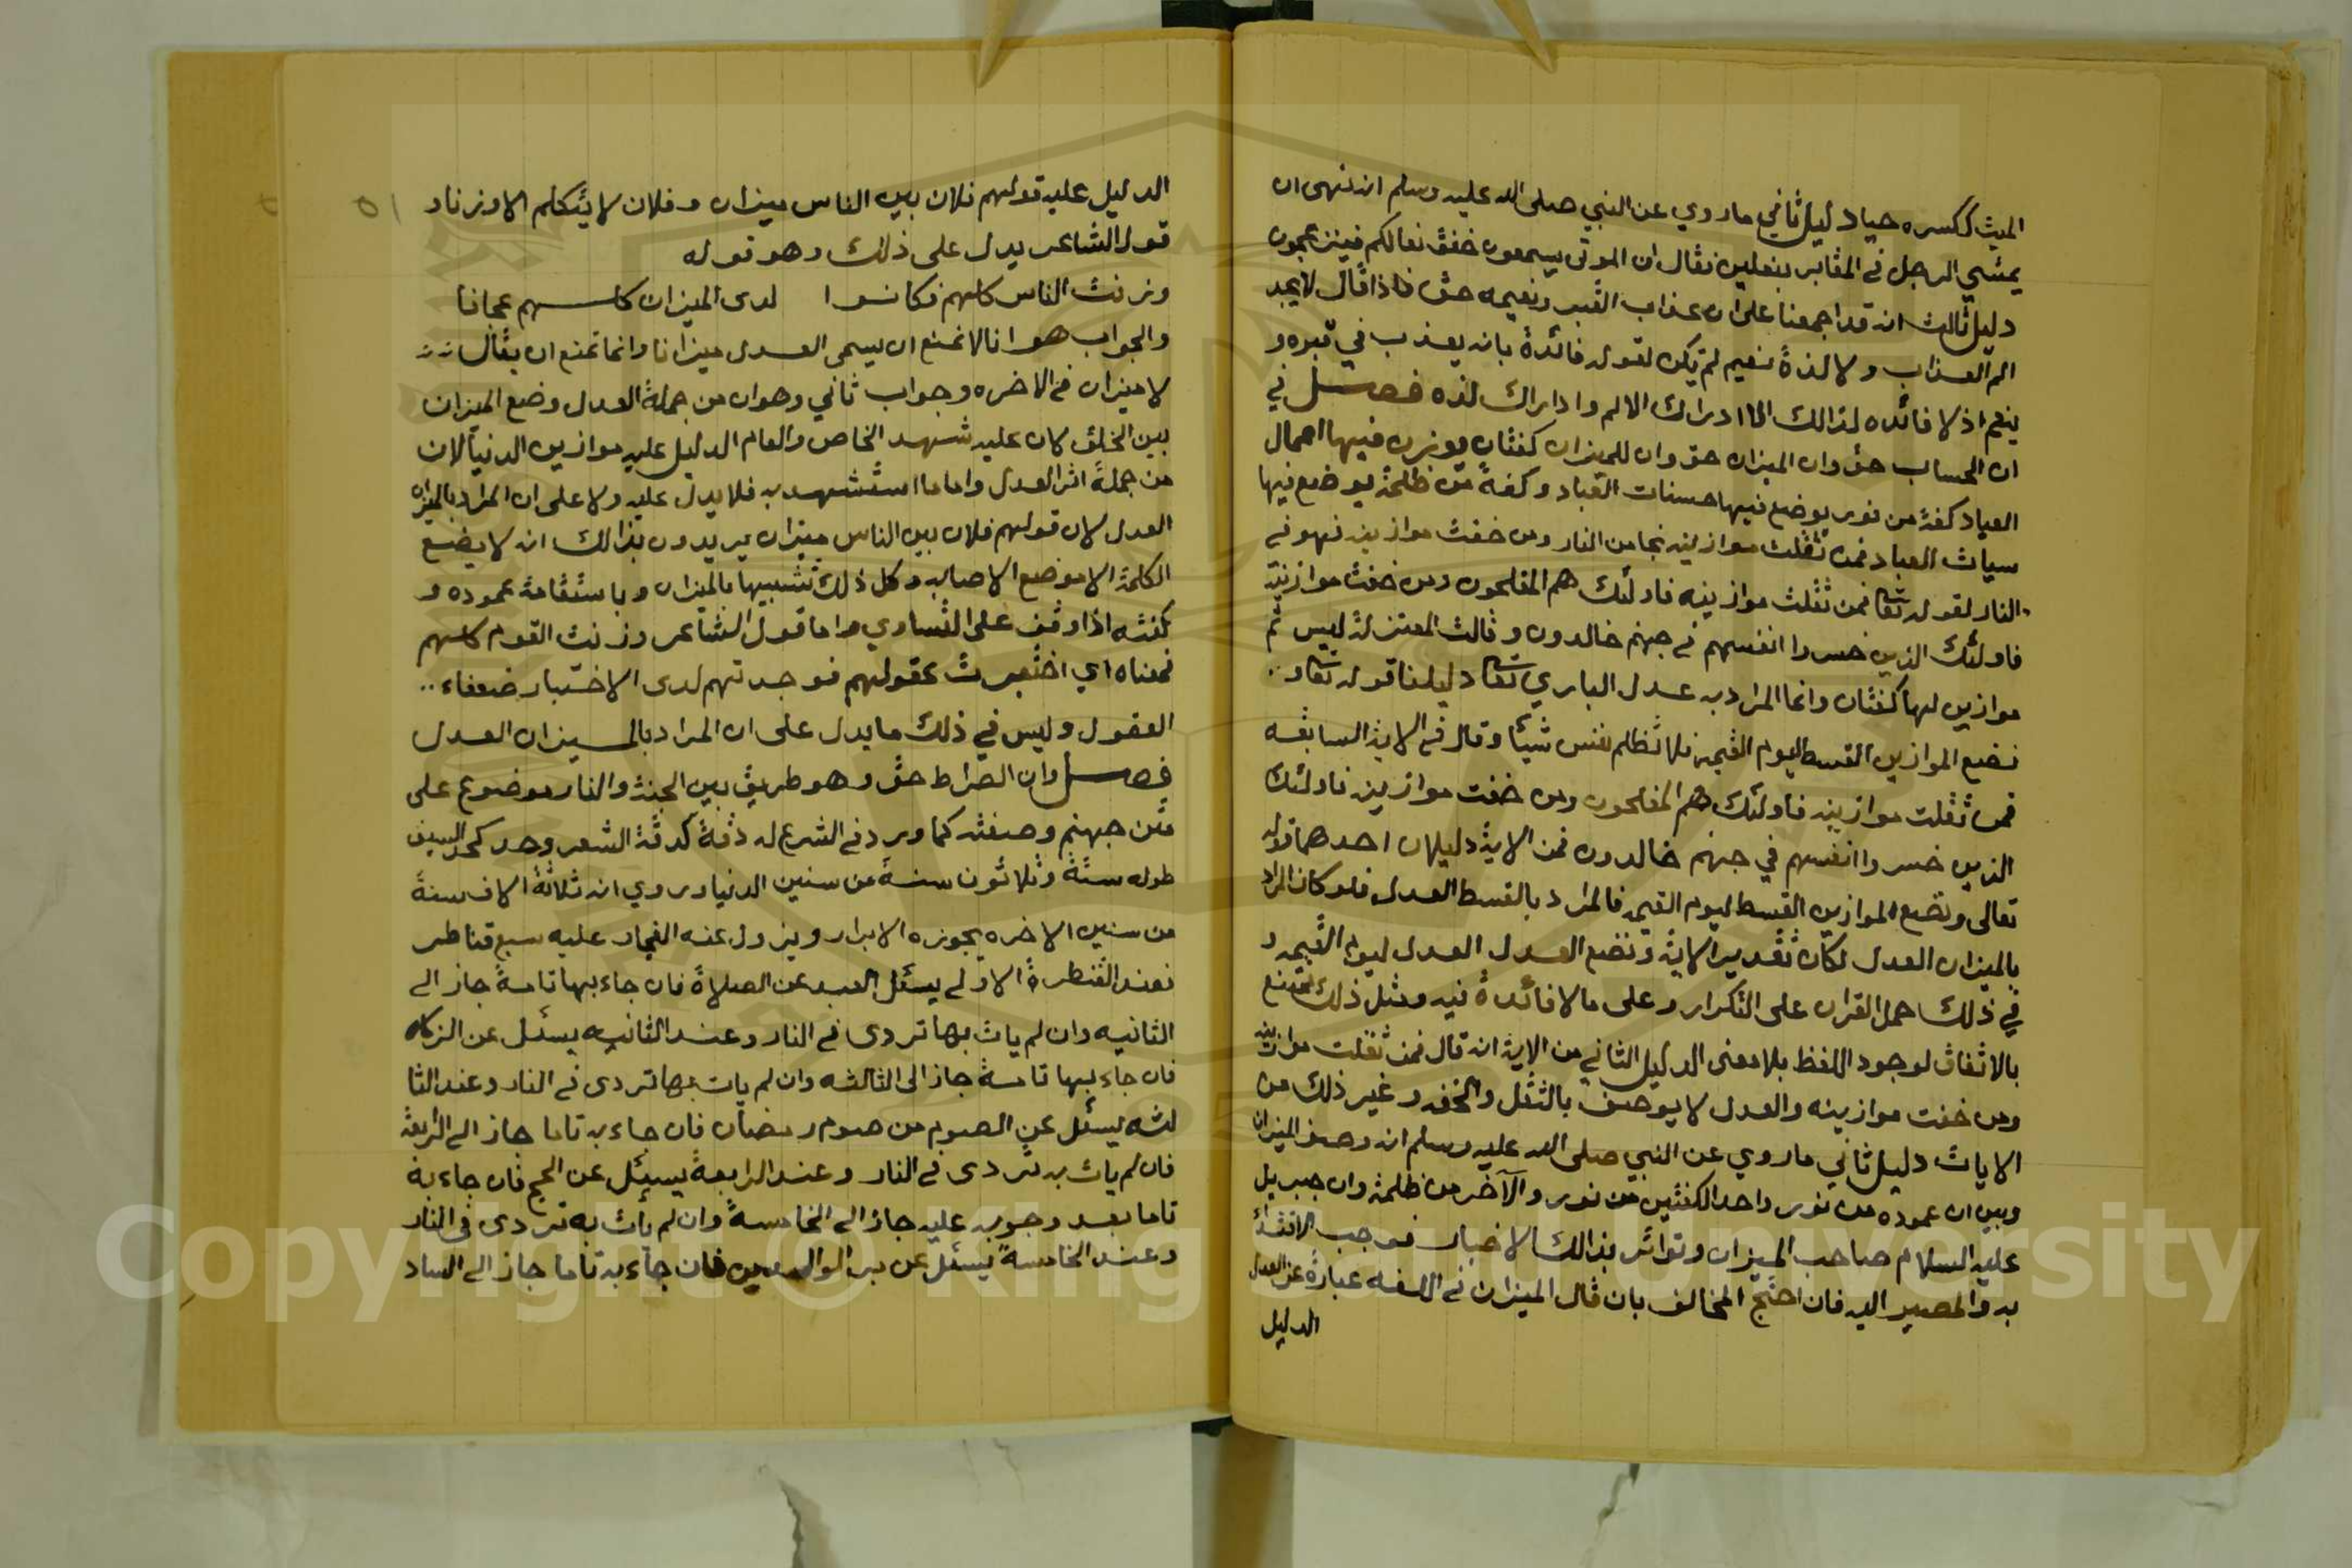 الميث ككسره حيا دليل ثاني ماروي عن النبي صلى الله عليه وسلم انه نهى ان
يمشي الرجل في المقابر بنعلين فقال ان الموتى يسمعون خفق نعالكم فينزعجون
دليل ثالث انه قد اجمعنا على ان عذاب القبر ونعيمه حق فاذا قال لا يجد
الم العذاب ولا لذة نعيم لم يكن لقوله فائدة بانه يعذب في قبره و
ينعم اذ لا فائده لذالك الا ادراك الالم وادراك لذه فصل في
ان الحساب حق وان الميزان حق وان للميزان كفتان يوزن فيها اعمال
العباد كفة من نور يوضع فيها حسنات العباد وكفة من ظلمة يوضع فيها
سيات العباد فمن ثقلت موازينه نجا من النار ومن خفت موازينه فهو في
النار لقوله تعا فمن ثقلت موازينه فاولئك هم المفلحون ومن خفت موازينه
فاولئك الذين خسروا انفسهم في جهنم خالدون وقالت المعتزلة ليس ثم
موازين لها كفتان وانما المراد به عدل الباري تعا دليلنا قوله تعا و..
نضع الموازين القسط ليوم القيمة فلا تظلم نفس شيئا وقال في الاية السابقه
فمن ثقلت موازينه فاولئك هم المفلحون ومن خفت موازينه فاولئك
الذين خسروا انفسهم في جهنم خالدون فمن الاية دليلان احدهما قوله
تعالى ونضع الموازين القسط ليوم القيمة فالمراد بالقسط العدل فلو كان المراد
بالميزان العدل لكان تقدير الاية ونضع العدل العدل ليوم القيمه و
في ذلك حمل القران على التكرار وعلى مالا فائدة فيه ومثل ذلك ممتنع
بالاتفاق لوجود اللفظ بلا معنى الدليل الثاني من الاية انه قال فمن ثقلت موازينه
ومن خفت موازينه والعدل لا يوصف بالثقل والخفه وغير ذلك من
الايات دليل ثاني ماروي عن النبي صلى الله عليه وسلم انه وصف الميزان
وبين ان عموده من نور واحد الكفتين من نور والآخر من ظلمة وان جبريل
عليه السلام صاحب الميزان وتواتر بذالك الاخبار فوجب الاقتداء
به والمصير اليه فان احتج المخالف بان قال الميزان في اللغه عبارة عن العدل
الدليل
٥١
الدليل عليه قولهم فلان بين الناس ميزان وفلان لا يتكلم الا وزنا و
قول الشاعر يدل على ذلك وهو قوله
وزنث الناس كلهم فكانوا لدى الميزان كلهم عجافا
والجواب هو انا لا نمنع ان يسمى العدل ميزانا وانما نمنع ان يقال
لا ميزان في الاخره وجواب ثاني وهوان من جملة العدل وضع الميزان
بين الخلق كان عليه شهد الخاص والعام الدليل عليه موازين الدنيا لان
من جملة اثر العدل واما ما استشهد به فلا يدل عليه ولا على ان المراد بالميزان
العدل لان قولهم فلان بين الناس ميزان يريدون بذالك انه لا يضيع
الكلمة الا موضع الاصابه وكل ذلك تشبيها بالميزان وباستقامة عموده و
كفته اذا وقف على التساوي واما قول الشاعر وزنث القوم كلهم
فمعناه اي اختبرث عقولهم فوجدتهم لدى الاختبار ضعفاء..
العقول وليس في ذلك ما يدل على ان المراد بالميزان العدل
فصل وان الصراط حق وهو طريق بين الجنة والنار موضوع على
متن جهنم وصفته كما ورد في الشرع له دقة كدقة الشعر وحد كحد السيف
طوله ستة وثلاثون سنة من سنين الدنيا وروي انه ثلاثة الاف سنة
من سنين الاخره يجوزه الابرار ويزول عنه الفجار عليه سبع قناطر
فعند القنطرة الاولى يسئل العبد عن الصلاة فان جاء بها تامة جاز الى
الثانيه وان لم يات بها تردى في النار وعند الثانيه يسئل عن الزكاه
فان جاء بها تامة جاز الى الثالثه وان لم يات بها تردى في النار وعند الثا
لثه يسئل عن الصوم من صوم رمضان فان جاء به تاما جاز الى الرابعة
فان لم يات به تردى في النار وعند الرابعة يسئل عن الحج فان جاء به
تاما بعد وجوبه عليه جاز الى الخامسة وان لم يات به تردى في النار
وعند الخامسة يسئل عن بر الوالدين فان جاء به تاما جاز الى الساد
Copyright © King Saud University